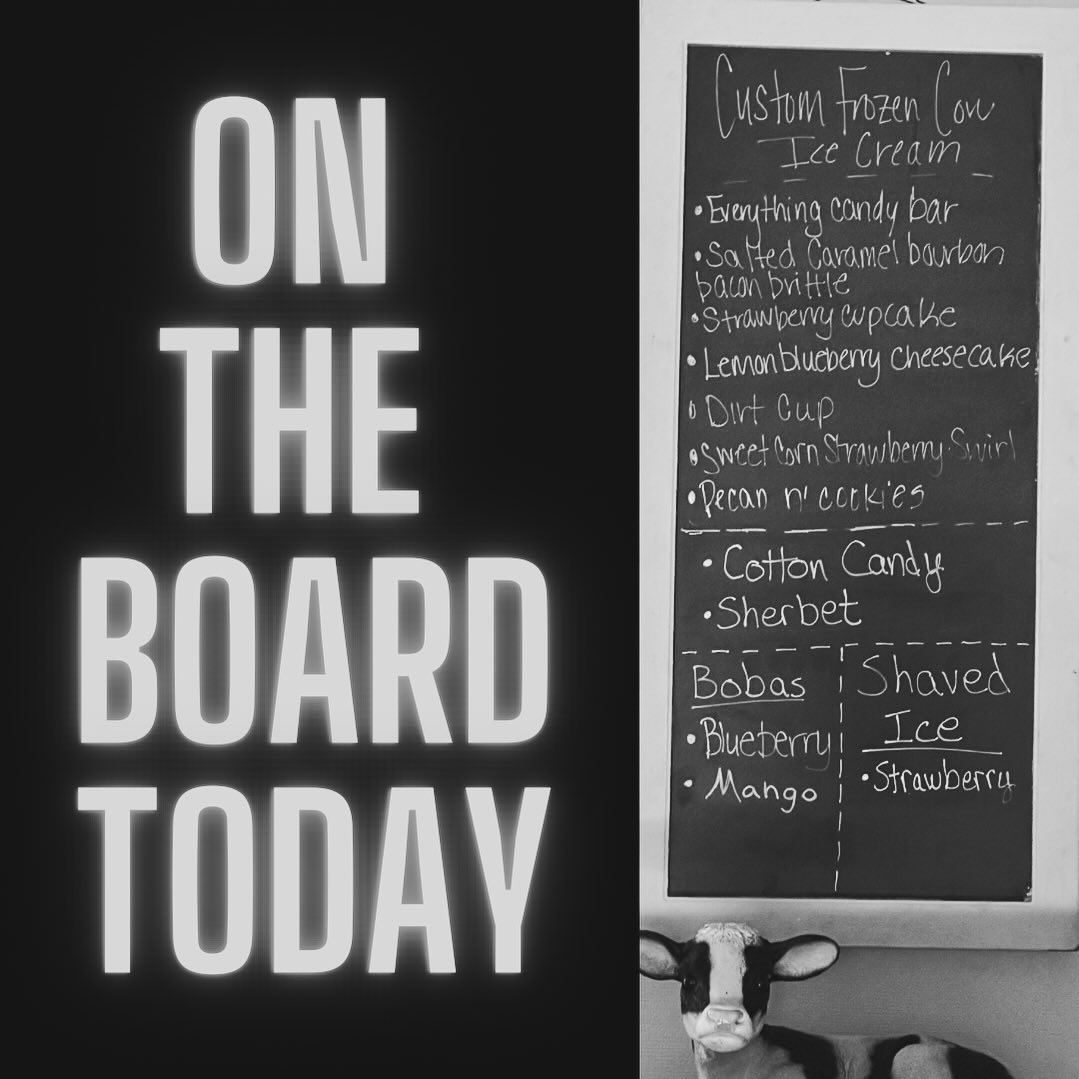 ON
THE
BOARD
TODAY
Custom Frozen Cow
Ice Cream
• Everything candy bar
• Salted Caramel bourbon
bacon brittle
• Strawberry cupcake
• Lemon blueberry cheesecake
• Dirt Cup
• Sweet Corn Strawberry Swirl
• Pecan n' cookies
• Cotton Candy
• Sherbet
Bobas
• Blueberry
• Mango
Shaved
Ice
• Strawberry